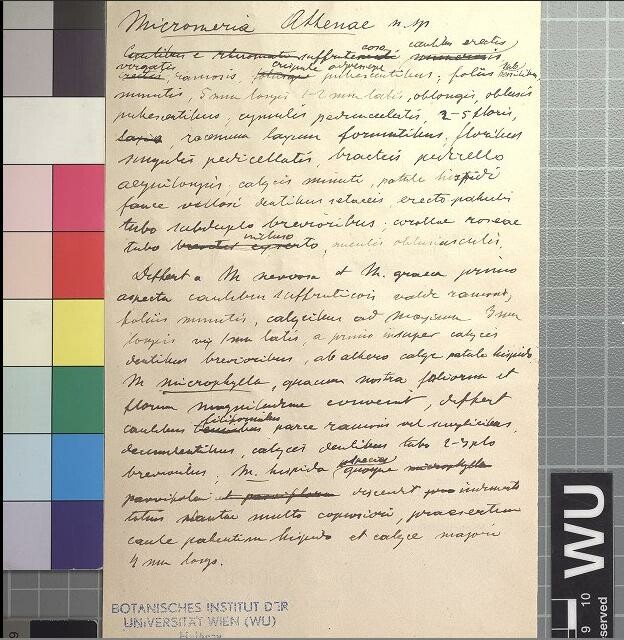 Micromeria Athenae n. sp
Caulibus e rhizomate suffruticosa caulibus erectis numerosis
virgatis
erectis ramosis, crispule adpresseque pubescentibus; foliis
minutis, 5 mm longis 1-2 mm latis, oblongis, obtusis
pubescentibus; cymulis pedunculatis, 2-5 floris,
laxis racemum laxum formantibus; floribus
singulis pedicellatis, bracteis pedicello
aequilongis; calycis minuti, patule hispidi
fauce villosi dentibus setaceis erecto patulis
tubo subduplo brevioribus; corollae roseae
tubo incluso brevites exserto, nuculis obtusiusculis.
Differt a M nervosa et M. graeca primo
aspectu caulibus suffruticosis valde ramosis,
foliis minutis, calycibus ad maximum 3 mm
longis vix 1 mm latis, a primo insuper calycis
dentibus brevioribus, ab altera calyce patule hispido.
M microphylla, quacum nostra foliorum et
florum magnitudine convenit, differt
caulibus filiformibus tenuibus parce ramosis vel simplicibus,
decumbentibus, calycis dentibus tubo 2-3plo
brevioribus; M. hispida species quoque microphylla
parvifolia et parviflora discernit indumento
totius plantae multo copiosiori, praesertim
caule patentim hispido et calyce majori
4 mm longo.
BOTANISCHES INSTITUT DER
UNIVERSITÄT WIEN (WU)
WU
9 10
served
9